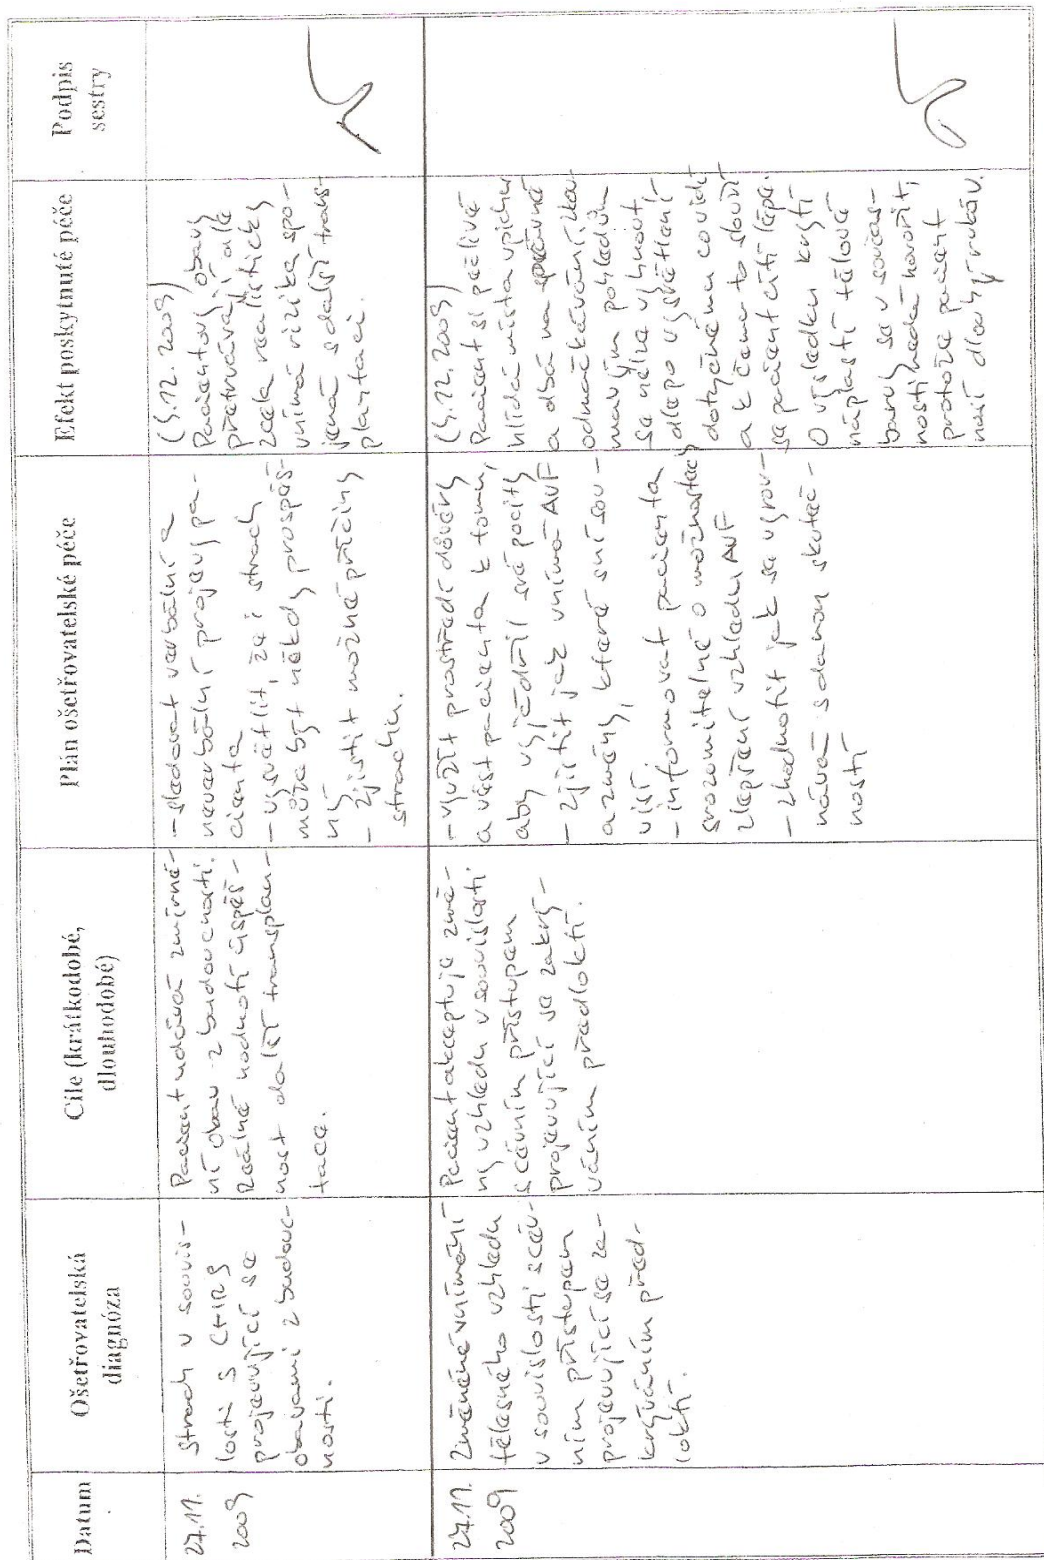 Datum
Ošetřovatelská
diagnóza
Cíle (krátkodobé,
dlouhodobé)
Plán ošetřovatelské péče
Efekt poskytnuté péče
Podpis
sestry
27.11.
2009
strach v souvis-
losti s CHRS
projevující se
obavami z budouc-
nosti.
Pacient udává zmírně-
ní obav z budoucnosti.
Reálně hodnotí úspěš-
nost další transplan-
tace.
- sledovat verbální a
neverbální projevy pa-
cienta
- vysvětlit, že i strach
může být někdy prospěš-
ný
- zjistit možné příčiny
strachu.
(5.12.2009)
Pacientovy obavy
přetrvávají ale
zcela realisticky
vnímá rizika spo-
jená s další trans-
plantací.
27.11.
2009
Změněné vnímání
tělesného vzhledu
v souvislosti s cév-
ním přístupem
projevující se za-
krýváním před-
loktí.
Pacient akceptuje změ-
ny vzhledu v souvislosti
s cévním přístupem
projevující se zakrý-
váním předloktí.
- využít prostředí důvěry
a vést pacienta k tomu,
aby vyjádřil své pocity
- zjistit jak vnímá AVF
a změny, které s ní sou-
visí.
- informovat pacienta
srozumitelně o možnostech
zlepšení vzhledu AVF
- zhodnotit jak se vyrov-
nává s danou skuteč-
ností
(5.12.2009)
Pacient si pečlivě
hlídá místa vpichu
a dbá na správné
odmačkávání.
pohledům
se nelze vyhnout,
ale po vysvětlení
dotyčnému co vidět
a k čemu to slouží
se pacient cítí lépe.
O výsledku krytí
náplastí tělové
barvy se v součas-
nosti nedá hovořit,
protože pacient
nosí dlouhý rukáv.